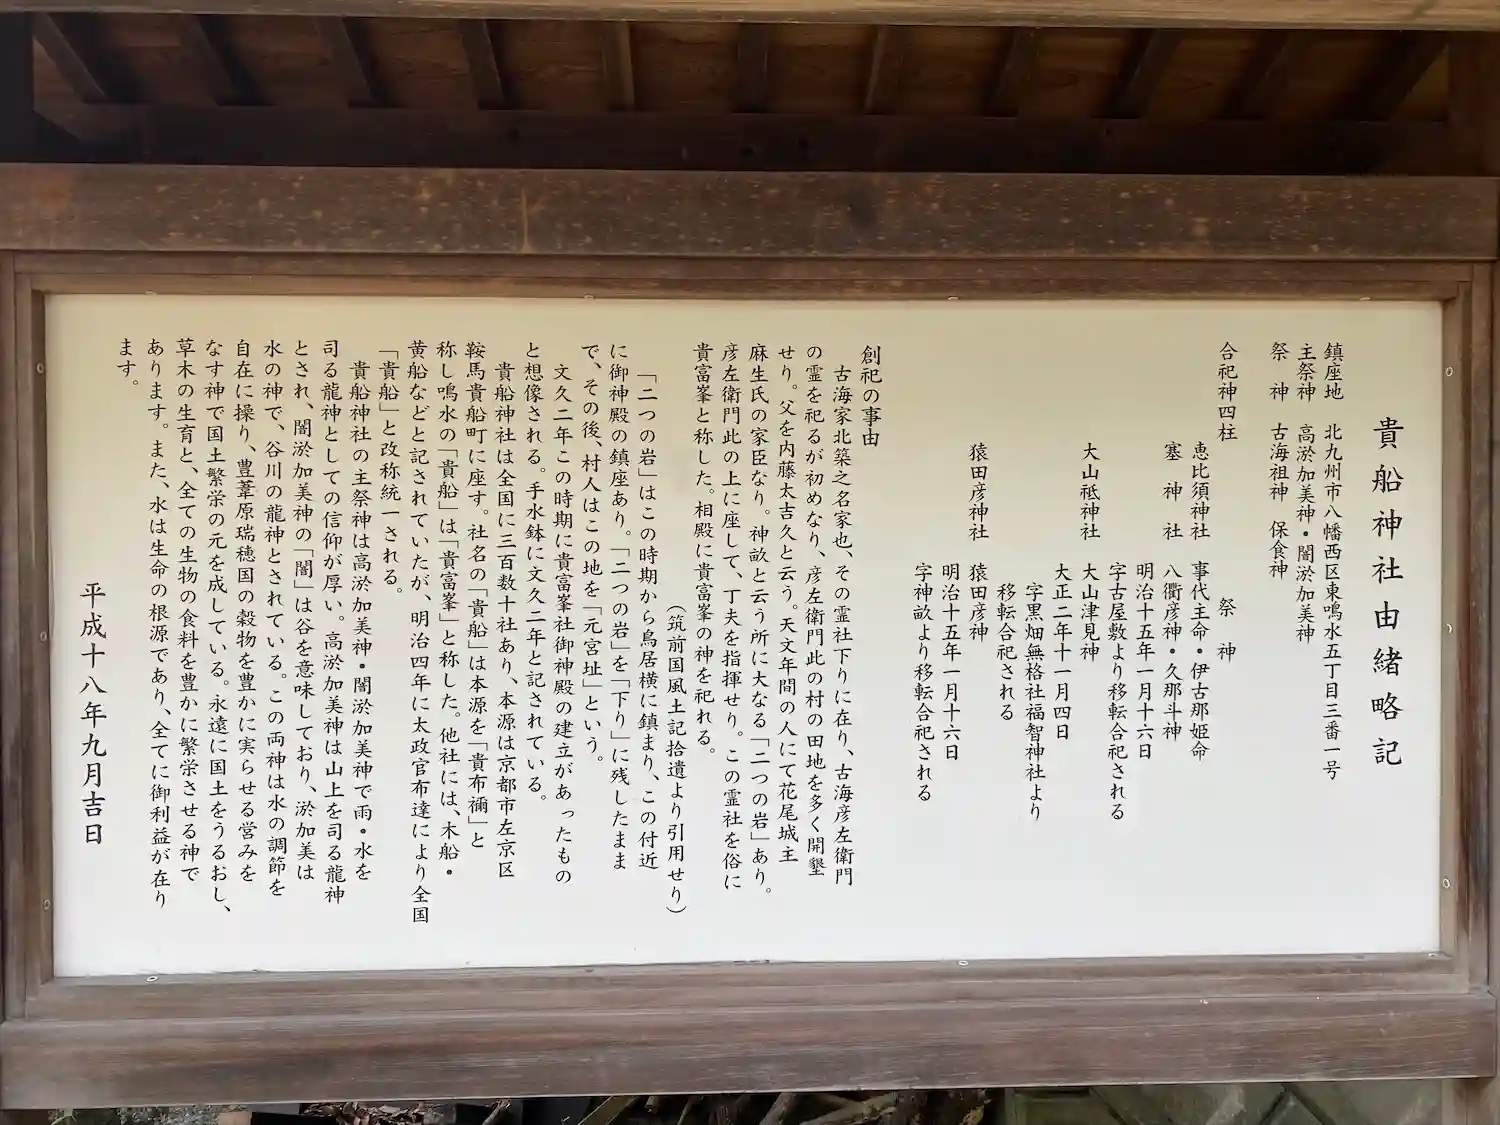 貴船神社由緒略記
鎮座地 北九州市八幡西区東鳴水五丁目三番一号
主祭神 高淤加美神・闇淤加美神
祭神 古海祖神 保食神
合祀神四柱 祭神
恵比須神社 事代主命・伊古那姫命
塞神社 八衢彦神・久那斗神
明治十五年一月十六日
字古屋敷より移転合祀される
大山祗神社 大山津見神
大正二年十一月四日
字黒畑無格社福智神社より
移転合祀される
猿田彦神社 猿田彦神
明治十五年一月十六日
字神畝より移転合祀される
創祀の事由
古海家北築之名家也、その霊社下りに在り、古海彦左衛門
の霊を祀るが初めなり、彦左衛門此の村の田地を多く開墾
せり。父を内藤太吉久と云う。天文年間の人にて花尾城主
麻生氏の家臣なり。神畝と云う所に大なる「二つの岩」あり。
彦左衛門此の上に座して、丁夫を指揮せり。この霊社を俗に
貴富峯と称した。相殿に貴富峯の神を祀れる。
（筑前国風土記拾遺より引用せり）
「二つの岩」はこの時期から鳥居横に鎮まり、この付近
に御神殿の鎮座あり。「二つの岩」を「下り」に残したまま
で、その後、村人はこの地を「元宮址」という。
文久二年この時期に貴富峯社御神殿の建立があったもの
と想像される。手水鉢に文久二年と記されている。
貴船神社は全国に三百数十社あり、本源は京都市左京区
鞍馬貴船町に座す。社名の「貴船」は本源を「貴布禰」と
称し鳴水の「貴船」は「貴富峯」と称した。他社には、木船・
黄船などと記されていたが、明治四年に太政官布達により全国
「貴船」と改称統一される。
貴船神社の主祭神は高淤加美神・闇淤加美神で雨・水を
司る龍神としての信仰が厚い。高淤加美神は山上を司る龍神
とされ、闇淤加美神の「闇」は谷を意味しており、淤加美は
水の神で、谷川の龍神とされている。この両神は水の調節を
自在に操り、豊葦原瑞穂国の穀物を豊かに実らせる営みを
なす神で国土繁栄の元を成している。永遠に国土をうるおし、
草木の生育と、全ての生物の食料を豊かに繁栄させる神で
あります。また、水は生命の根源であり、全てに御利益が在り
ます。
平成十八年九月吉日